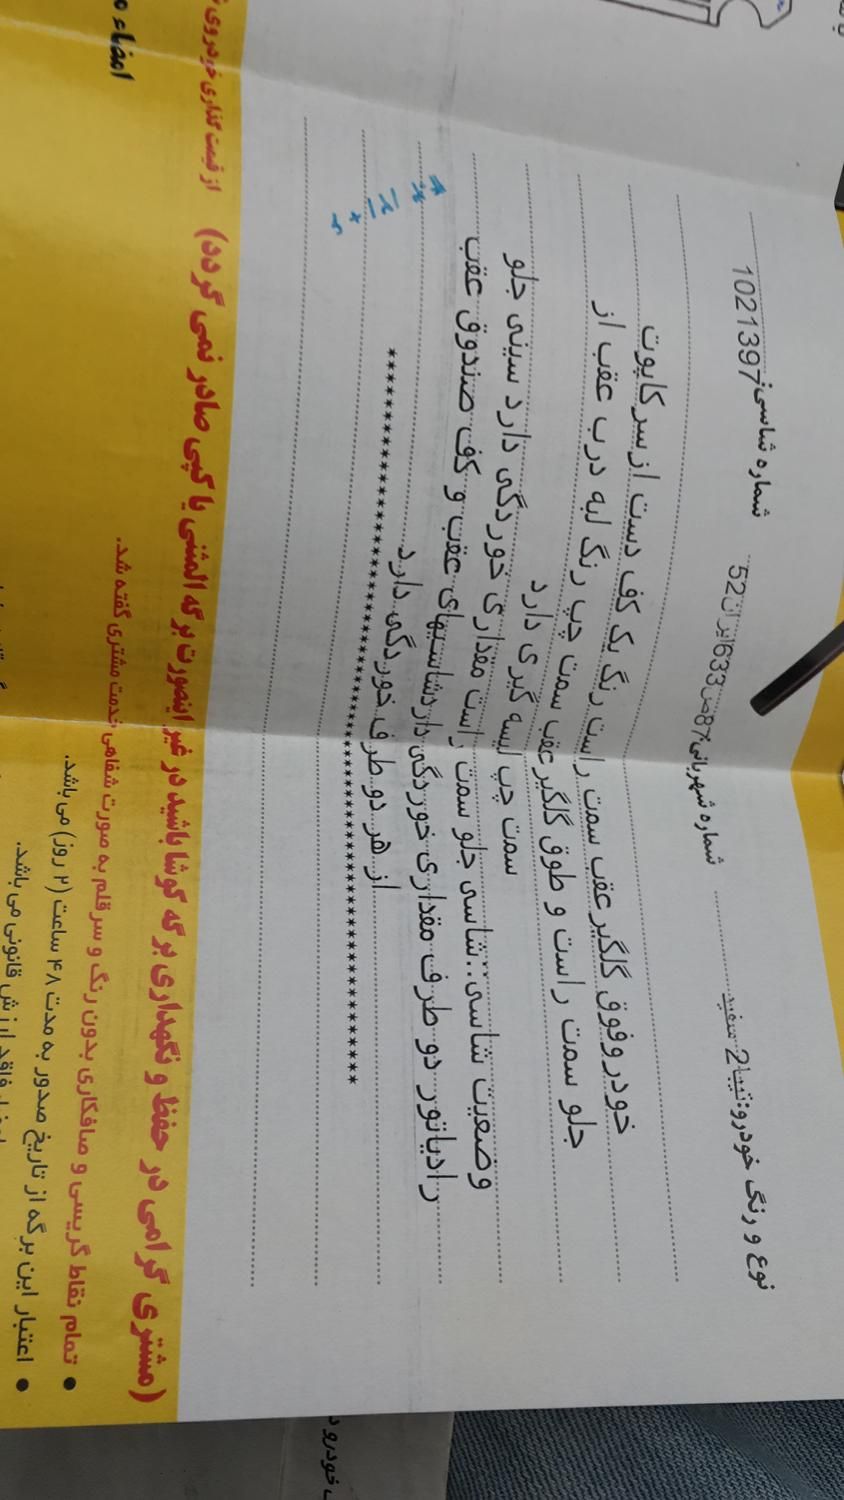 نوع و رنگ خودرو:تیبا2 سفید شماره شهربانی:87ص633ایران52 شماره شاسی:1021397
خودرو فوق گلگیر عقب سمت راست رنگ یک کف دست از سر کاپوت
جلو سمت راست و طوق گلگیر عقب سمت چپ رنگ لبه درب عقب از
سمت چپ لیسه گیری دارد
وضعیت شاسی:.:شاسی جلو سمت راست مقداری خوردگی دارد سینی جلو
رادیاتور دو طرف مقداری خوردگی داردشاسیهای عقب و کف صندوق عقب
از هر دو طرف خوردگی دارد
(مشتری گرامی در حفظ و نگهداری برگه کوشا باشید در غیر اینصورت برگه المثنی یا کپی صادر نمی گردد)
• تمام نقاط گریسی و صافکاری بدون رنگ و سر قلم به صورت شفاهی خدمت مشتری گفته شد.
• اعتبار این برگه از تاریخ صدور به مدت ۴۸ ساعت (۲ روز) می باشد.
فاقد ارزش قانونی می باشد.
از قیمت گذاری خودروی
امضاء
خودرو